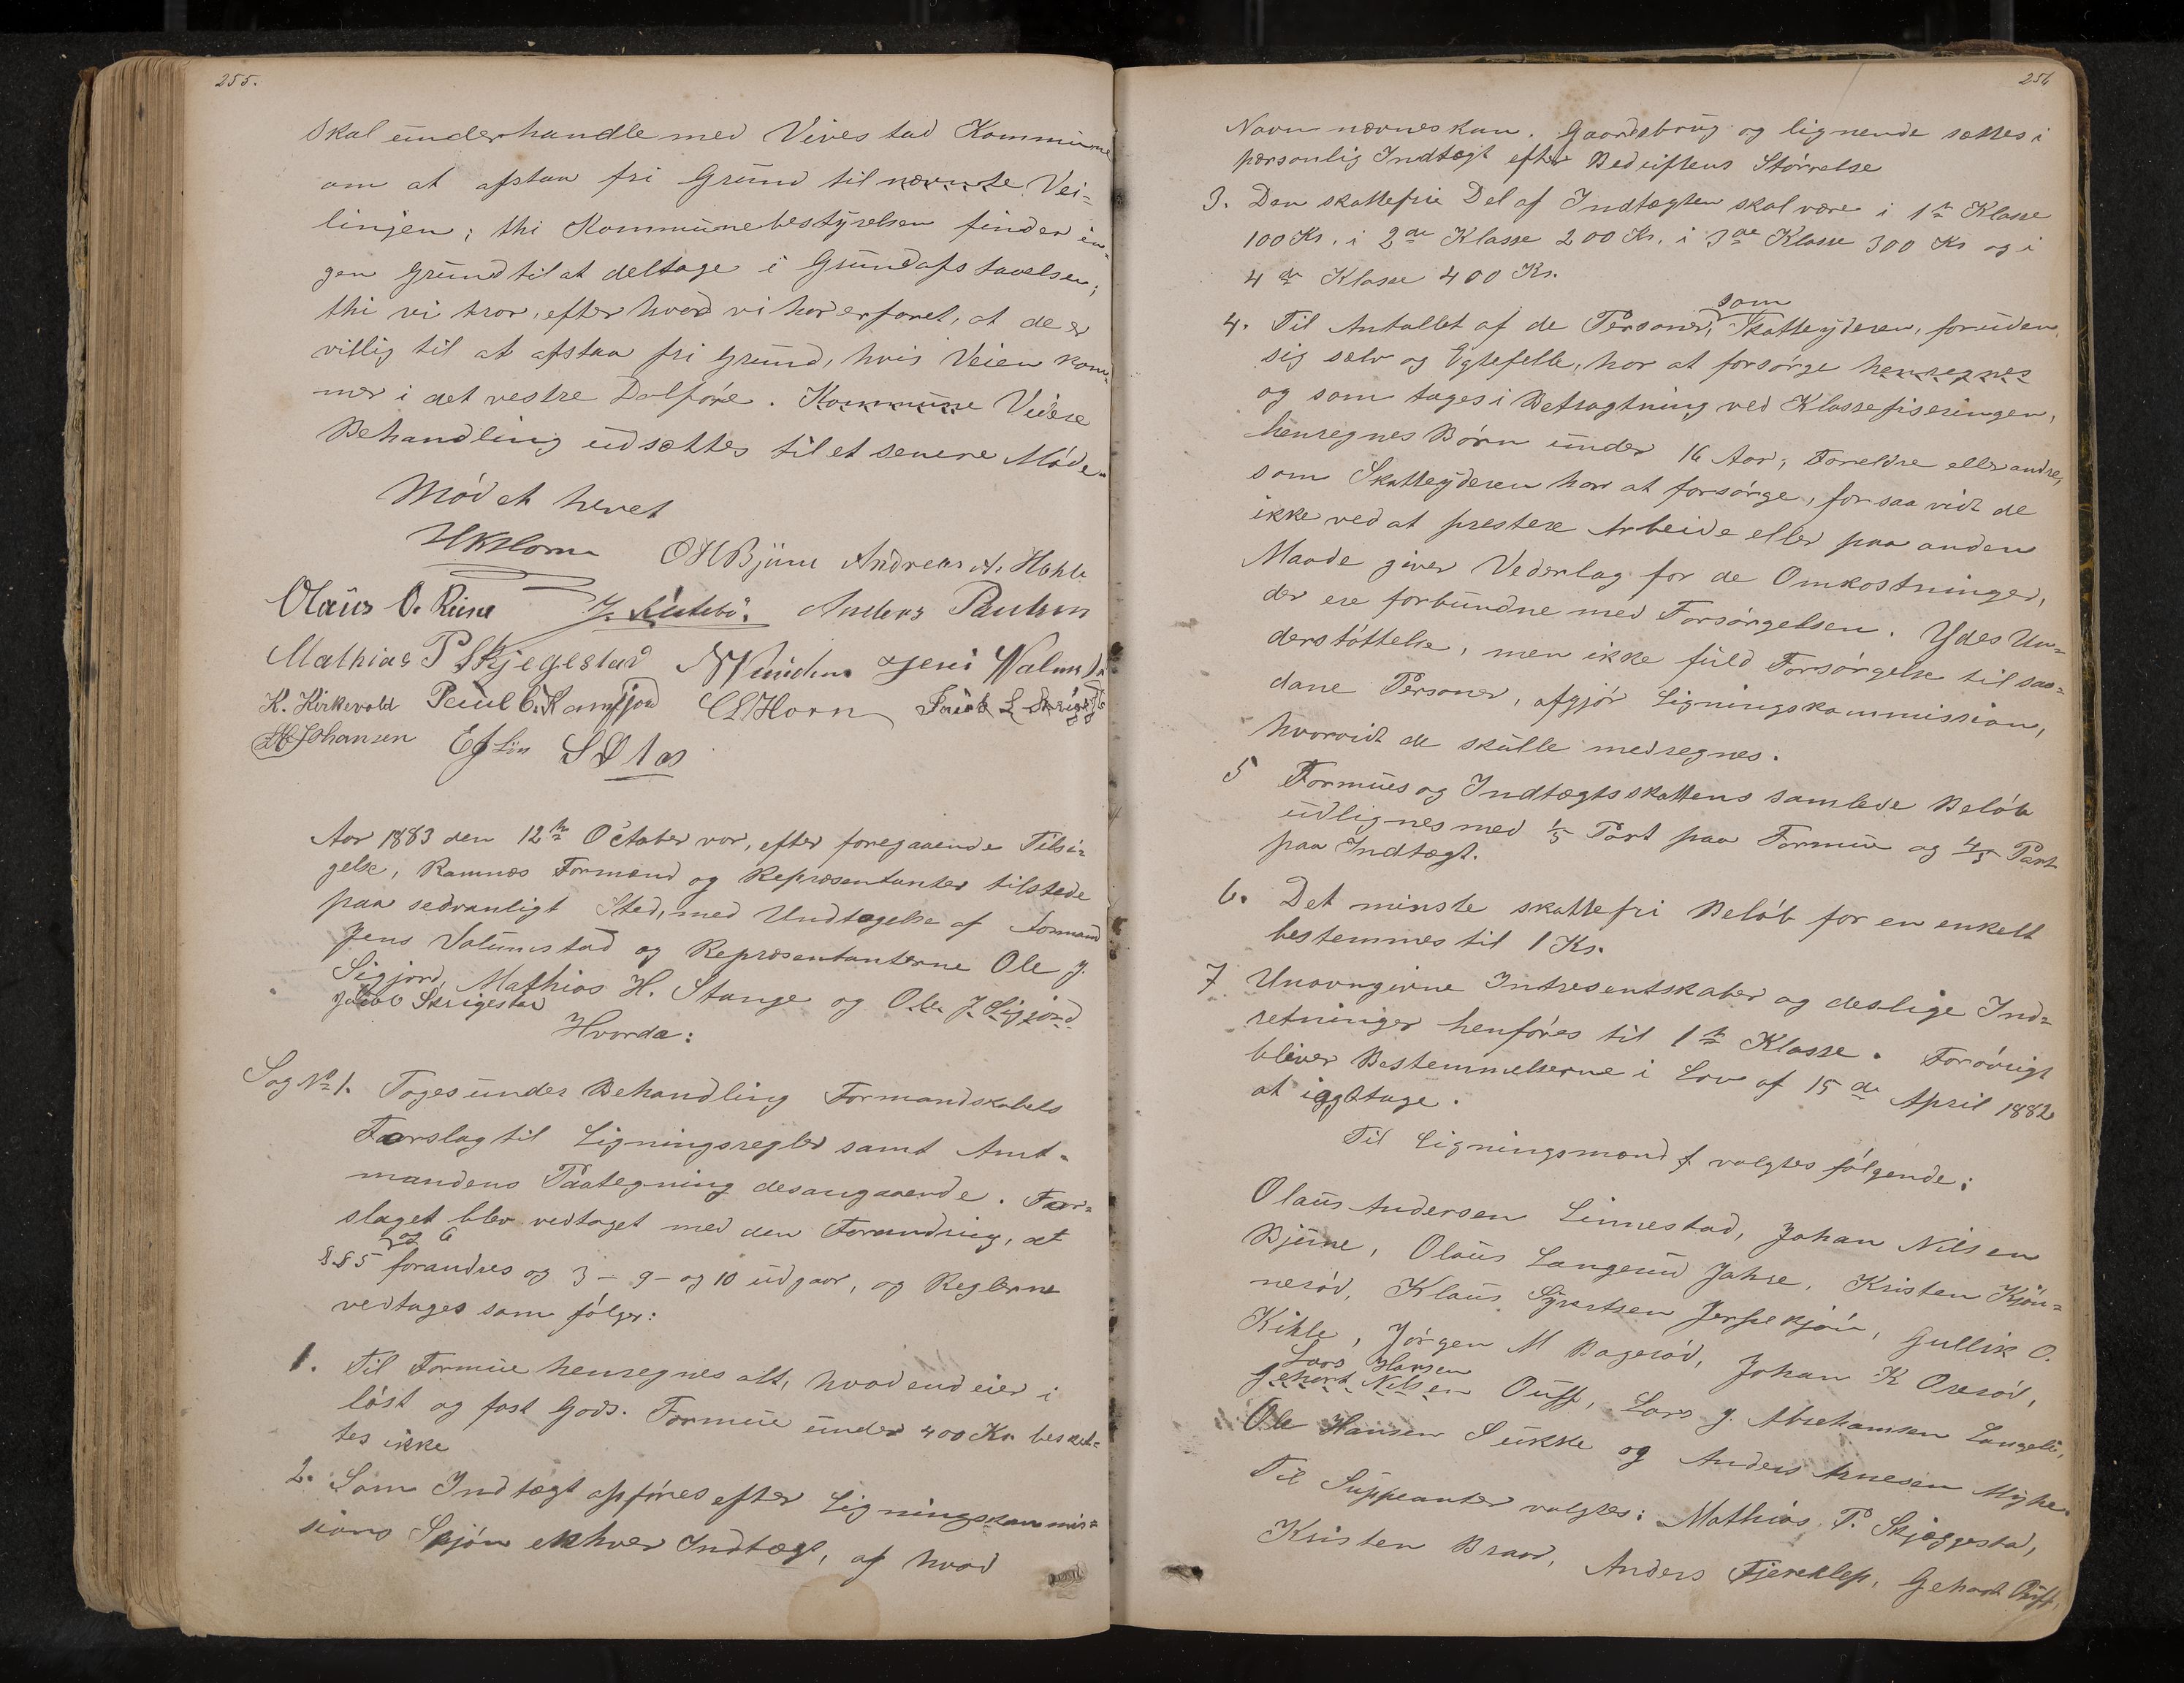 255.
Skal underhandle med Vivestad Kommune
om at afstaa fri Grund til nævnte Vei-
linjen; thi Kommunebestyrelsen finder in-
gen Grund til at deltage i Grundafstaaelsen;
thi vi tror, efter hvad vi har erfaret, at de er
villig til at afstaa fri Grund, hvis Veien kom-
mer i det vestre Dalføre. Kommune Videre
Behandling udsættes til et senere Møde.
Mødet hevet
HKHorn OHBjune Andreas A. Hohle
Olaus O. Riise J. Anders Paulsen
Mathias P Skjegestad Jens
K. Kirkevold Paul C. Ramfjord CLHorn
Johansen
Aar 1883 den 12te October var, efter foregaaende Tilsi-
gelse, Ramnæs Formænd og Repræsentanter tilstede
paa sedvanligt Sted, med Undtagelse af Formand
Jens Valumstad og Repræsentanterne Ole J.
Sigjord, Mathias H. Stange og Ole J Sigjord
Jakob Skrigestad
Hvorda:
Sag No 1. Toges under Behandling Formandskabets
Forslag til Ligningsregler samt Amt-
mandens Paategning desangaaende. For-
slaget blev vedtaget med den Forandring, at
og 6
§§5 forandres og 3 - 9 - og 10 udgaar, og Reglerne
vedtages som følger:
1. Til Formue henregnes alt, hvad end eier i
løst og fast Gods. Formue under 400 Kr. beskat-
tes ikke
2. Som Indtægt opføres efter Ligningskommis-
sions Skjøn enhver Indtægt, af hvad
256
Navn nævnes kan. Gaardsbrug og lignende sættes i
personlig Indtægt efter Bedriftens Størrelse
3. Den skattefrie Del af Indtægten skal være i 1te Klasse
100 Kr. i 2de Klasse 200 Kr. i 3de Klasse 300 Kr og i
4de Klasse 400 Kr.
som
4. Til Antallet af de Personer, Skatteyderen, foruden
sig selv og Egtefelle, har at forsørge henregnes
og som tages i Betragtning ved Klassefiseringen,
henregnes Børn under 16 Aar, Foreldre eller andre,
som Skatteyderen har at forsørge, forsaavidt de
ikke ved at prestere Arbeide eller paa anden
Maade giver Vederlag for de Omkostninger,
der ere forbundne med Forsørgelsen. Ydes Un-
derstøttelse, men ikke fuld Forsørgelse til saa-
dane Personer, afgjør Ligningskommission,
hvorvidt de skulle medregnes.
5 Formues og Indtægtsskattens samlede Beløb
udlignes med 1/5 Part paa Formue og 4/5 Part
paa Indtægt.
6. Det minste skattefri Beløb for en enkelt
bestemmes til 1 Kr.
7 Unavngivne Intresentskaber og deslige Ind-
retninger henføres til 1te Klasse. Forøvrigt
bliver Bestemmelserne i Lov af 15de April 1882
at iagttage.
Til Ligningsmænd valgtes følgende:
Olaus Andersen Linnestad, Johan Nilsen
Bjune, Olaus Langerud Jahre, Kristen Kjøn-
nerød, Klaus Syvertsen Jerpekjøn, Gullik O.
Kihle, Jørgen M Bagerød, Johan K Orerød,
Lars Hansen
Gehart Nilsen Ouff, Lars J. Abrehamsen Langeli,
Ole Hansen Sukke og Anders Arnesen Myhre.
Til Suppeanter valgtes: Mathias P. Skjæggestad,
Kristen Braar, Anders Fjereklep, Gehart Ouff,